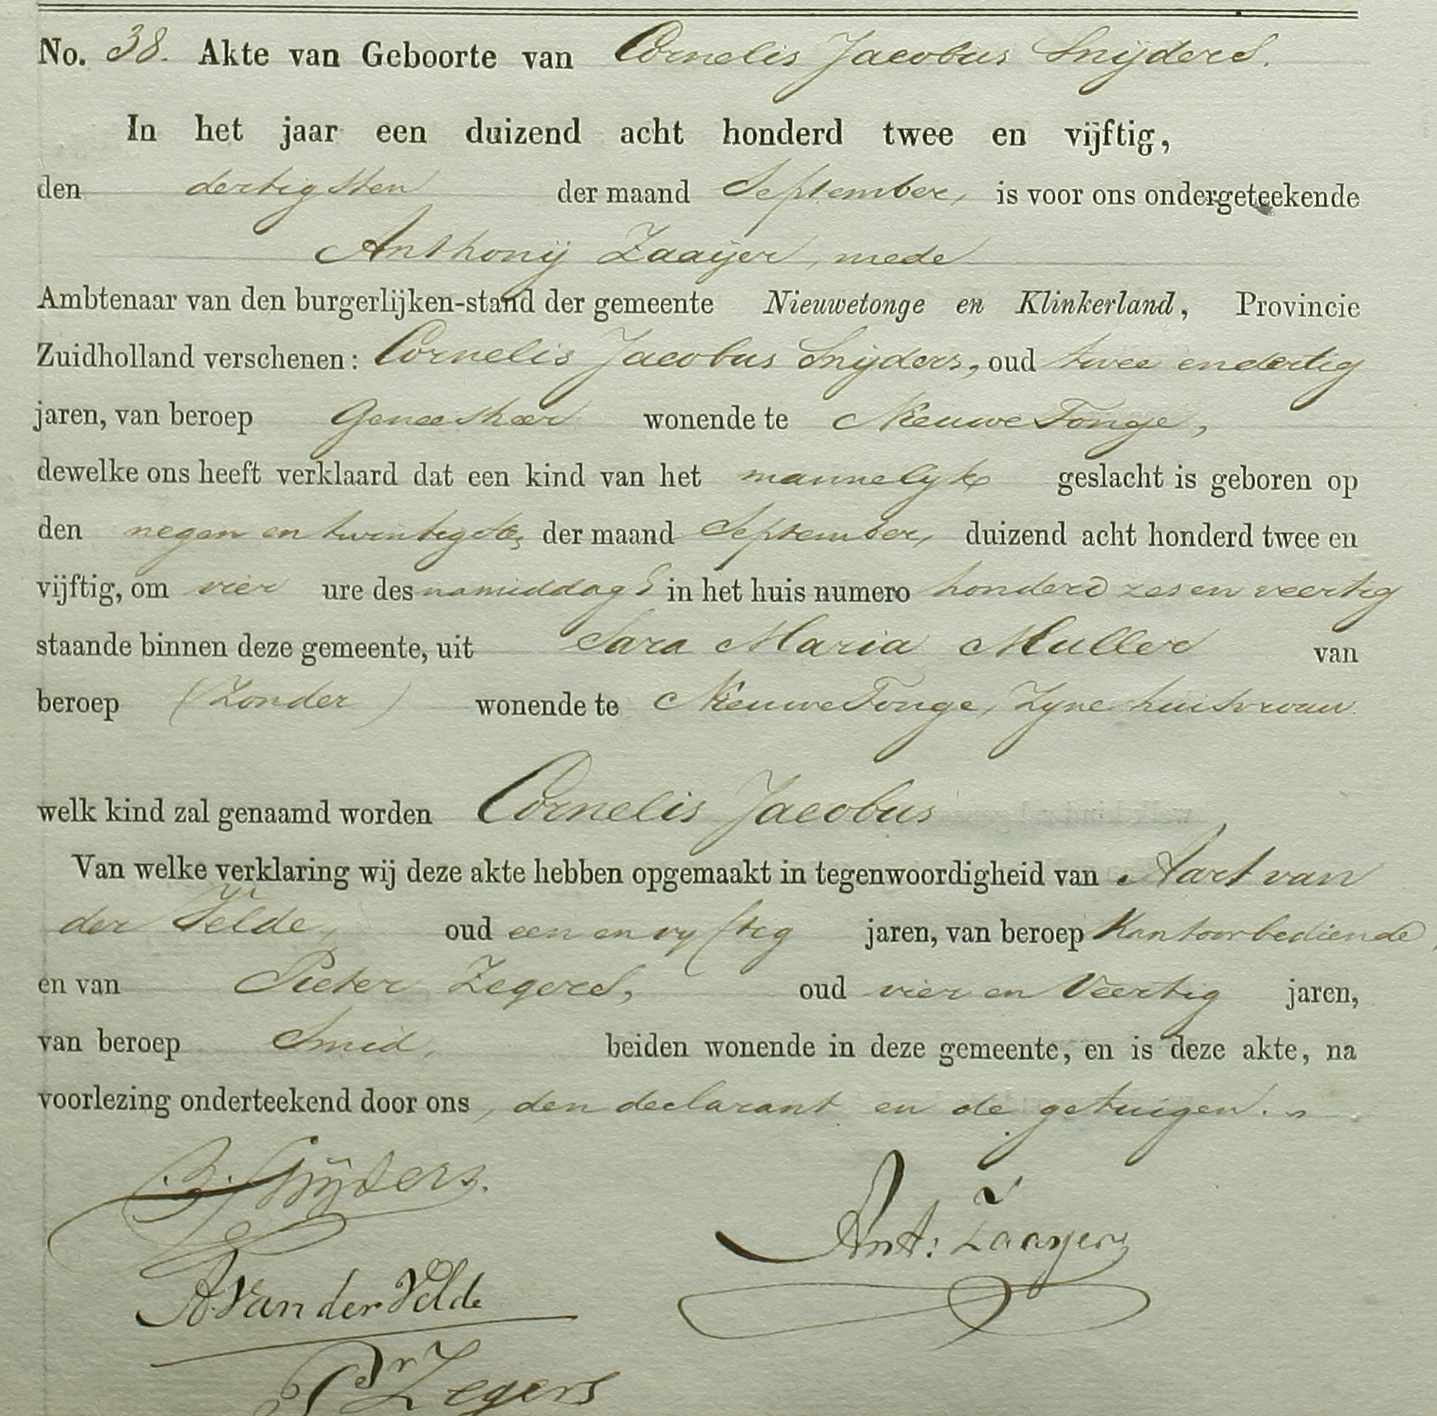 No. 38. Akte van Geboorte van Cornelis Jacobus Snijders.
In het jaar een duizend acht honderd twee en vijftig,
den dertigsten der maand September, is voor ons ondergeteekende
Anthonij Zaaijer, mede
Ambtenaar van den burgerlijken-stand der gemeente Nieuwetonge en Klinkerland, Provincie
Zuidholland verschenen: Cornelis Jacobus Snijders, oud twee endertig
jaren, van beroep Geneesheer wonende te Nieuwe Tonge,
dewelke ons heeft verklaard dat een kind van het mannelyk geslacht is geboren op
den negen en twintigste, der maand September, duizend acht honderd twee en
vijftig, om vier ure des namiddags in het huis numero honderd zes en veertig
staande binnen deze gemeente, uit Sara Maria Muller van
beroep (Zonder) wonende te Nieuwe Tonge, Zyne huisvrouw
welk kind zal genaamd worden Cornelis Jacobus
Van welke verklaring wij deze akte hebben opgemaakt in tegenwoordigheid van Aart van
der Velde, oud een en vyftig jaren, van beroep Kantoorbediende,
en van Pieter Zegers, oud vier en Veertig jaren,
van beroep Smid, beiden wonende in deze gemeente, en is deze akte, na
voorlezing onderteekend door ons, den declarant en de getuigen.
Snijders.
Ant: Zaayer
A. Van der Velde
Pr Zegers